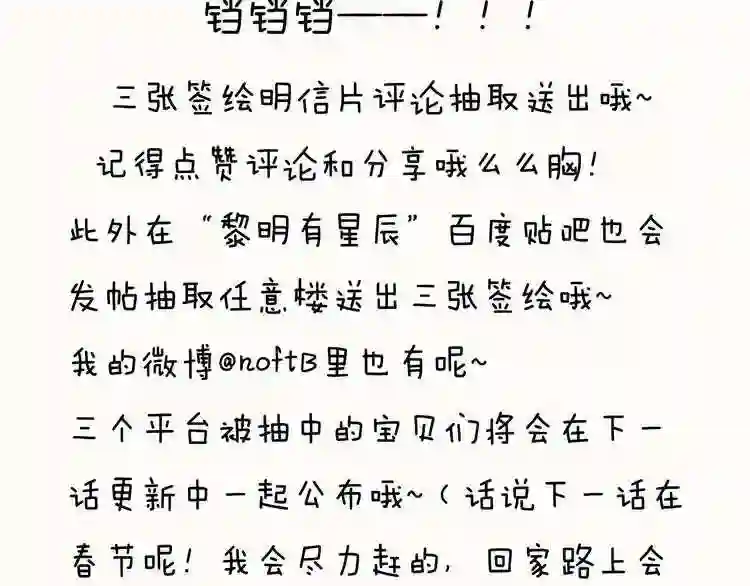 铛铛铛——！！！
三张签绘明信片评论抽取送出哦~
记得点赞评论和分享哦么么胸！
此外在“黎明有星辰”百度贴吧也会
发帖抽取任意楼送出三张签绘哦~
我的微博@noftB里也有呢~
三个平台被抽中的宝贝们将会在下一
话更新中一起公布哦~（话说下一话在
春节呢！我会尽力赶的，回家路上会